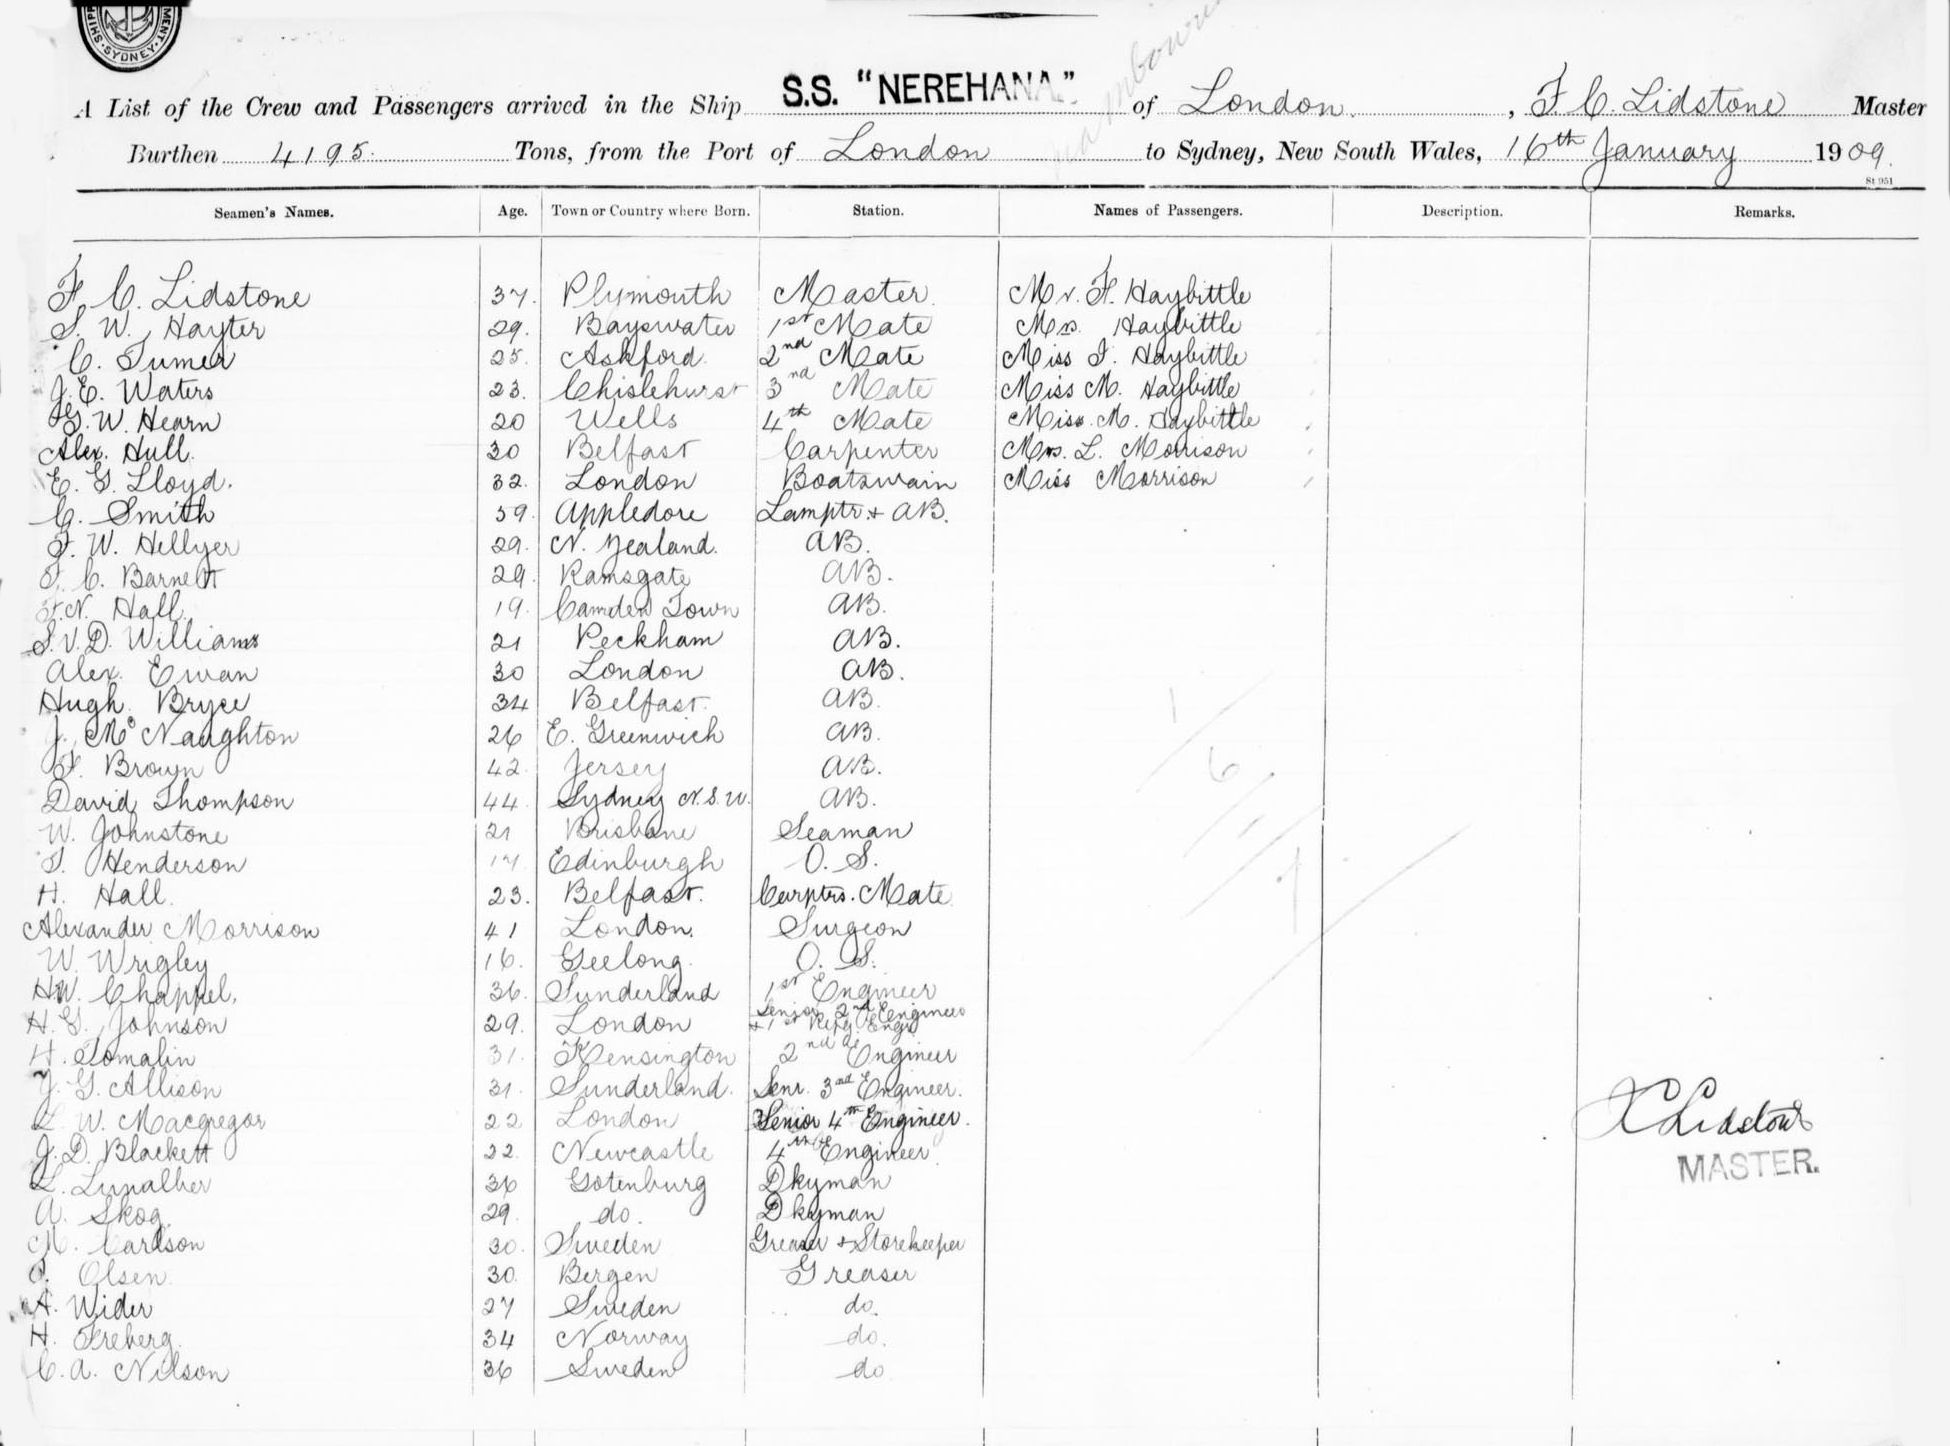 SYDNEY
A List of the Crew and Passengers arrived in the Ship S.S. "NEREHANA" of London, F C. Lidstone Master
Burthen 4195. Tons, from the Port of London to Sydney, New South Wales, 16th January 1909.
St 951
Seamen's Names. Age. Town or Country where Born. Station. Names of Passengers. Description. Remarks.
F. C. Lidstone 37. Plymouth Master. Mr. F. Haybittle
S. W. Hayter 29. Bayswater 1st Mate Mrs. Haybittle
C. Turner 25. Ashford. 2nd Mate Miss I. Haybittle
J. E. Waters 23. Chislehurst 3nd Mate Miss M. Haybittle
G. W. Hearn 20 Wells 4th Mate Miss. M. Haybittle
Alex. Hull. 30 Belfast Carpenter Mrs. L. Morrison
E. G. Lloyd. 32. London Boatswain Miss Morrison
C. Smith 59. Appledore Lamptr + AB.
F. W. Hellyer 29. N. Zealand. AB.
F. C. Barnett 29. Ramsgate AB.
F. N. Hall. 19. Camden Town AB.
S. V. D. Williams 21 Peckham AB.
Alex. Ewan 30 London AB.
Hugh Bryce 34 Belfast. AB.
J. McNaughton 26 E. Greenwich AB.
F. Brown 42. Jersey AB.
David Thompson 44. Sydney N.S.W. AB.
W. Johnstone 21 Brisbane Seaman
T. Henderson 17. Edinburgh O. S.
H. Hall. 23. Belfast. Carptrs. Mate
Alexander Morrison 41 London. Surgeon
W. Wrigley 16. Geelong. O. S.
H.W. Chappel. 36. Sunderland 1st Engineer
H. G. Johnson 29. London Senior 2nd Engineer
+ 1st Refg. Engr
H. Tomalin 31. Kensington 2nd Engineer
J. G. Allison 31. Sunderland. Senr. 3rd Engineer.
L. W. Macgregor 22 London Senior 4th Engineer.
J. D. Blackett 22. Newcastle 4th Engineer.
L. 36 Gotenburg Dkyman
A. Skog. 29. do. Dkyman
M. Carlson 30. Sweden Greaser + Storekeeper
Olsen 30. Bergen Greaser
A. Wider 27 Sweden do.
H. Freberg. 34 Norway do.
C. A. Nilson 36 Sweden do
F C Lidstone
MASTER.